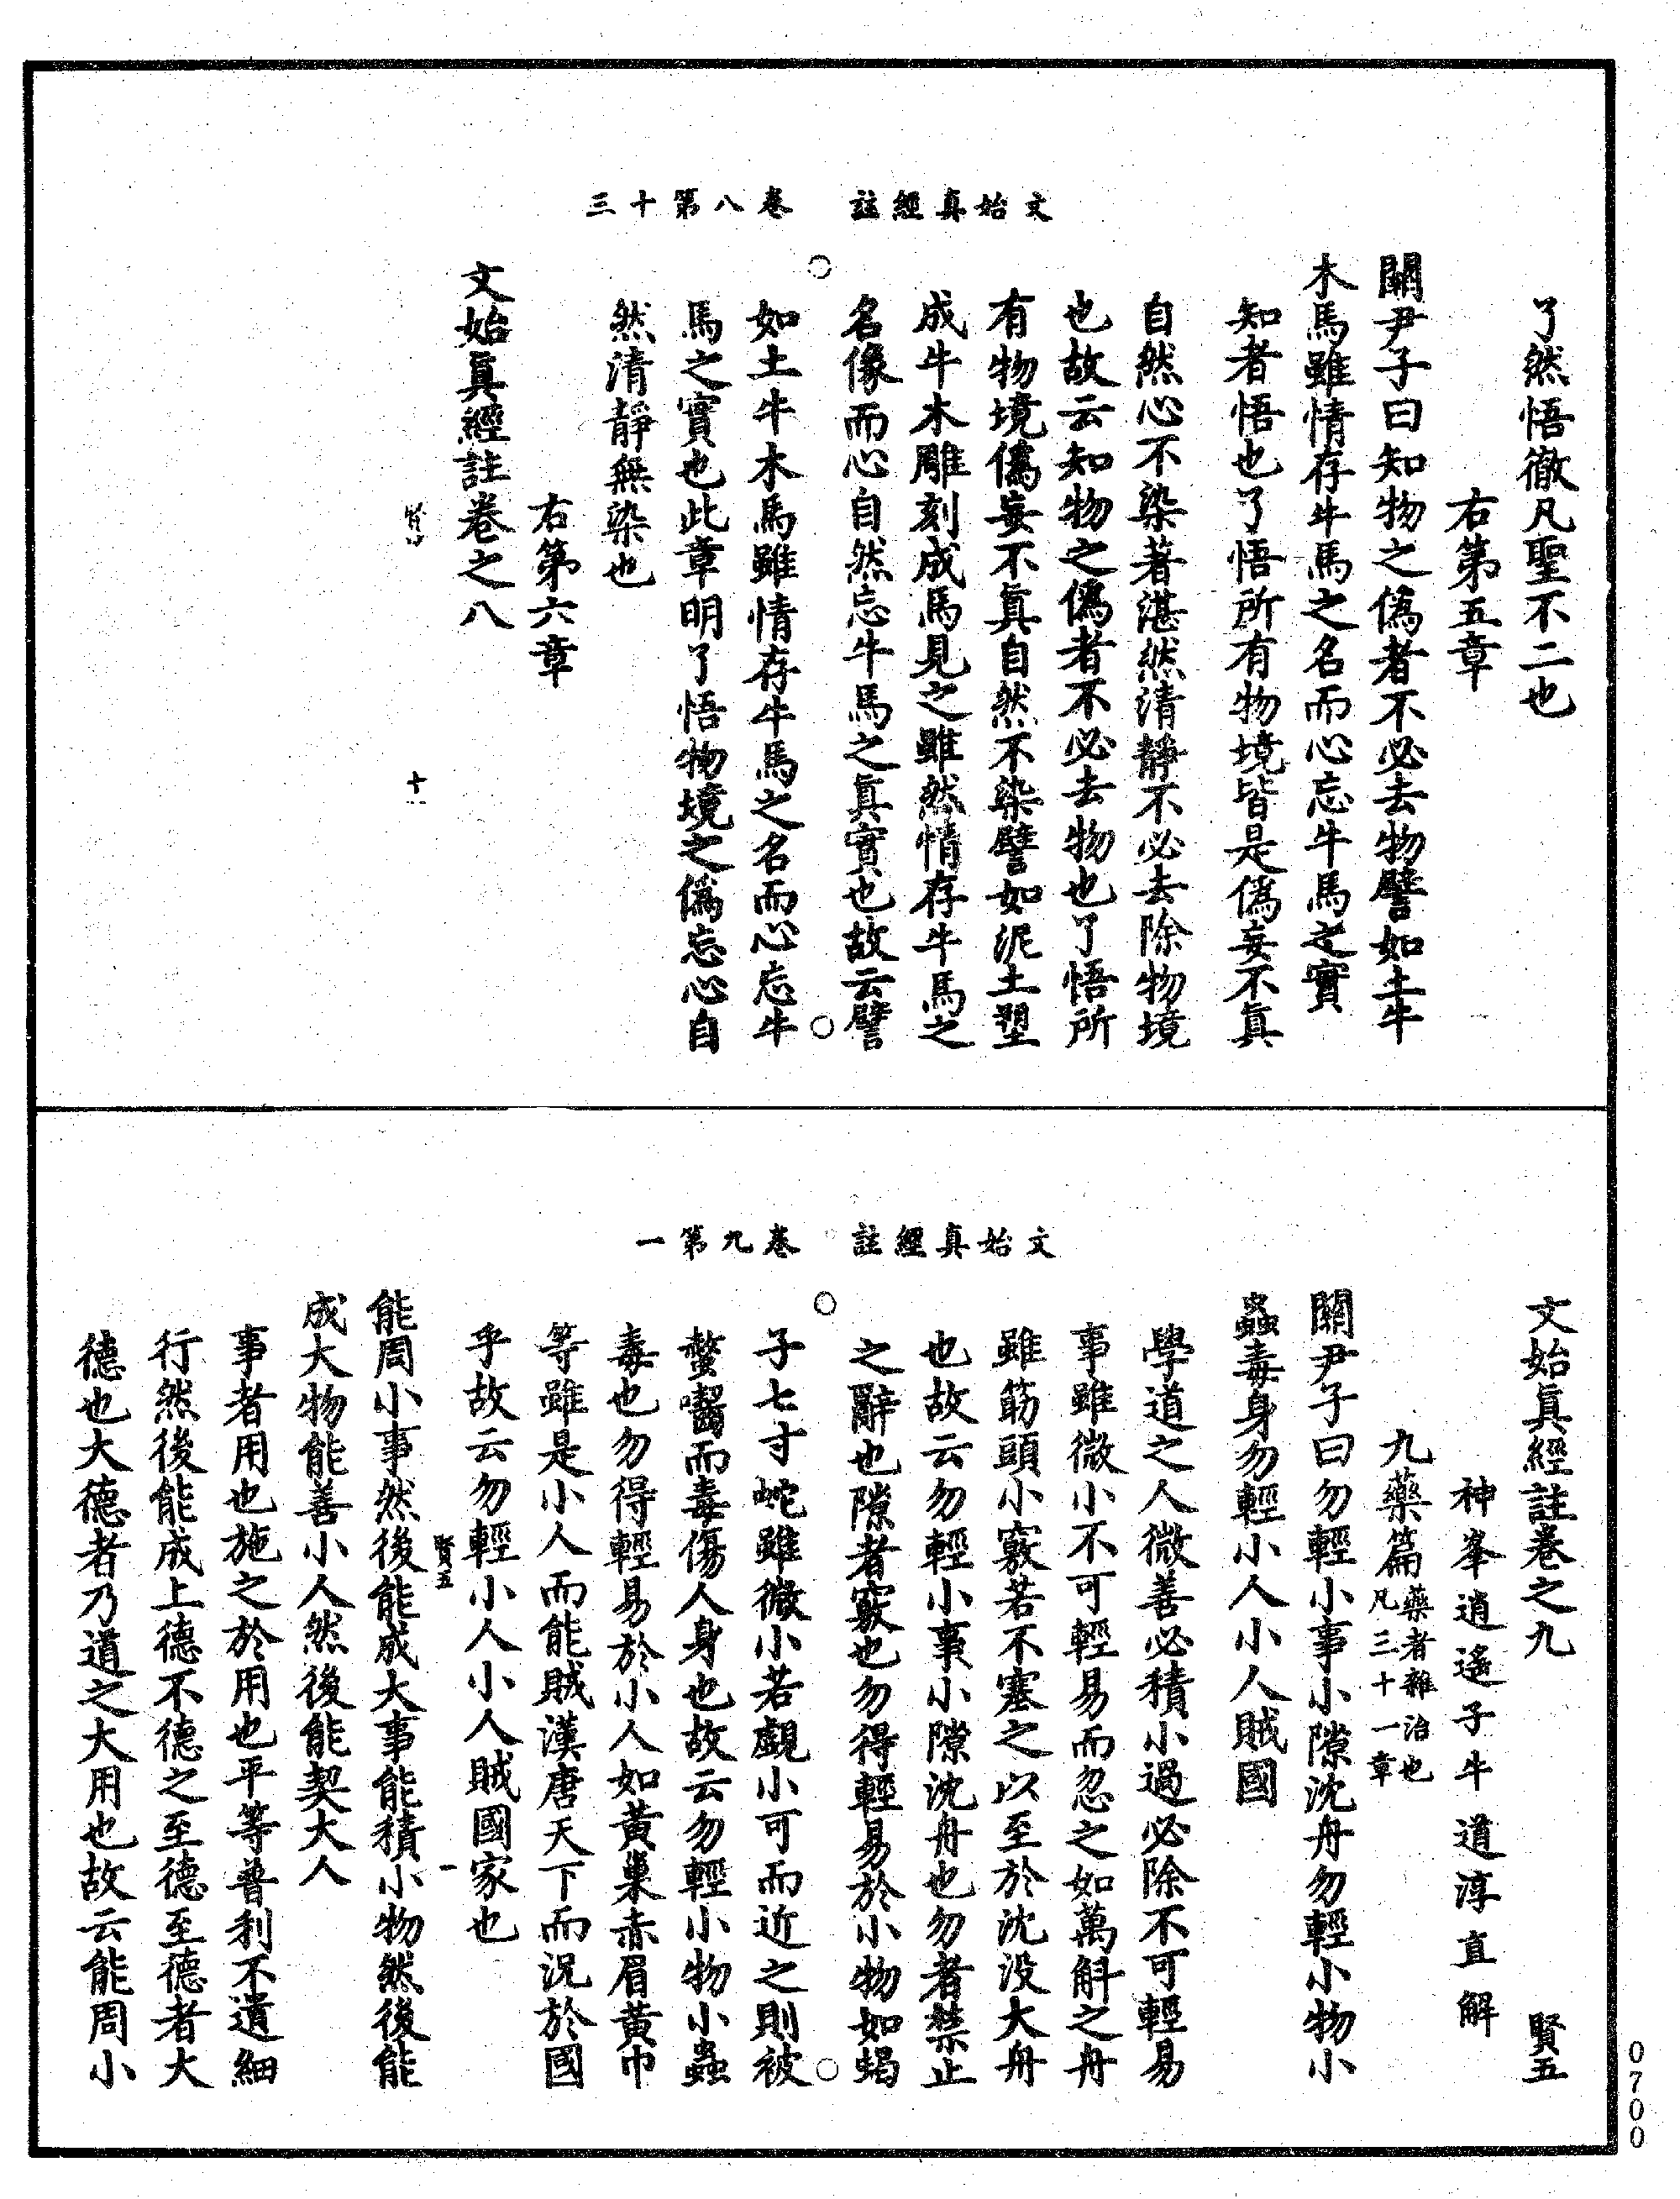 文始真經註　卷八第十三
了然悟徹凡聖不二也
右第五章
關尹子曰知物之偽者不必去物譬如土牛
木馬雖情存牛馬之名而心忘牛馬之實
知者悟也了悟所有物境皆是偽妄不真
自然心不染著湛然清靜不必去除物境
也故云知物之偽者不必去物也了悟所
有物境偽妄不真自然不染譬如泥土塑
成牛木雕刻成馬見之雖然情存牛馬之
名像而心自然忘牛馬之真實也故云譬
如土牛木馬雖情存牛馬之名而心忘牛
馬之實也此章明了悟物境之偽忘心自
然清靜無染也
右第六章
文始真經註卷之八
文始真經註　卷九第一
文始真經註卷之九　賢五
神峯逍遙子牛道淳直解
九藥篇藥者雜治也凡三十一章
關尹子曰勿輕小事小隙沈舟勿輕小物小
蟲毒身勿輕小人小人賊國
學道之人微善必積小過必除不可輕易
事雖微小不可輕易而忽之如萬斛之舟
雖筯頭小竅若不塞之以至於沈沒大舟
也故云勿輕小事小隙沈舟也勿者禁止
之辭也隙者竅也勿得輕易於小物如蝎
子七寸蛇雖微小若覷小可而近之則被
螫嚙而毒傷人身也故云勿輕小物小蟲
毒也勿得輕易於小人如黃巢赤眉黃巾
等雖是小人而能賊漢唐天下而況於國
乎故云勿輕小人小人賊國家也
賢五　一
能周小事然後能成大事能積小物然後能
成大物能善小人然後能契大人
事者用也施之於用也平等普利不遺細
行然後能成上德不德之至德至德者大
德也大德者乃道之大用也故云能周小
0700